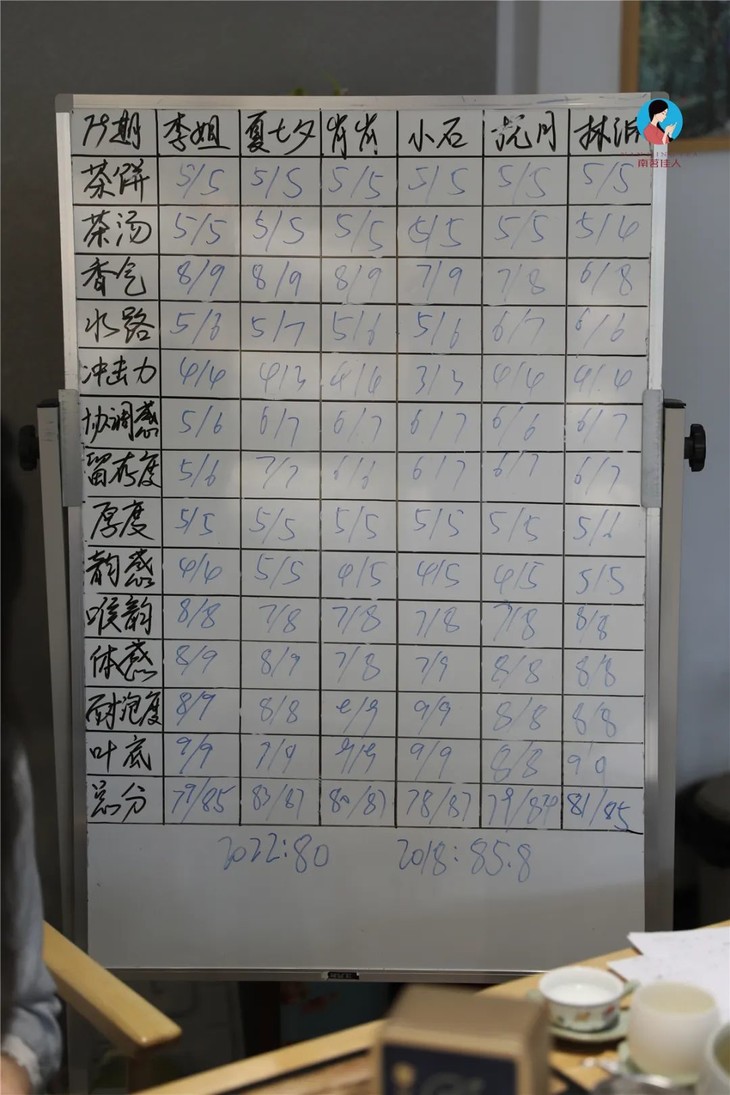 79期 李姐 夏七夕 肖肖 小石 沉月 林泊
南茗佳人
茶饼 5/5 5/5 5/5 5/5 5/5 5/5
茶汤 5/5 5/5 5/5 5/5 5/5 5/4
香气 8/9 8/9 8/9 7/9 7/8 6/8
水路 5/6 5/7 5/6 5/6 6/7 6/6
冲击力 4/4 4/3 4/4 3/3 4/4 4/4
协调感 5/6 6/7 6/7 6/7 6/6 6/7
留存度 5/6 7/7 6/6 6/7 6/7 6/7
厚度 5/5 5/5 5/5 5/5 5/5
韵感 4/4 5/5 4/5 4/5 4/5 5/5
喉韵 8/8 7/8 7/8 7/8 7/8 8/8
体感 8/9 8/9 7/8 7/9 8/8 8/8
耐泡度 8/9 8/8 9/9 8/8 8/8
叶底 9/9 9/9 9/9 8/8 9 9
总分 79/85 83/87 80/87 78/87 79/84 81/85
2022:80 2018:85.8